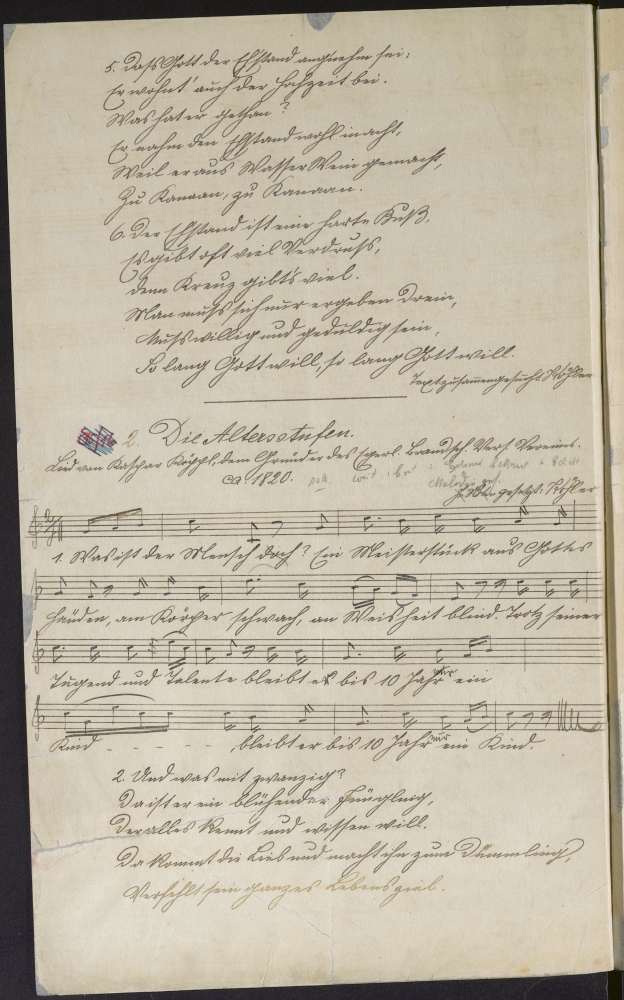 5. Dass Gott der Ehstand angenehm sei:
Er wohnt' auch der Hochzeit bei.
Was hat er gethan?
Er nahm den Ehstand wohl in acht,
Weil er aus Wasser Wein gemacht,
Zu Kanaan, zu Kanaan.
6. Der Ehstand ist eine harte Buß,
Es gibt oft viel Verdruss,
denn Kreuz gibt's viel.
Man muss sich nur ergeben drein,
Muss willig und geduldig sein,
So lang Gott will, so lang Gott will.
Text zusammengesucht:
2. Die Altersstufen.
Lied von Kaspar dem Gründer des Egerl. Brandsch. Vers. Vereins.
ca. 1820.
Melodie
gesetzt:
1. Was ist der Mensch doch? Ein Meisterstück aus Gottes
Händen, am Körper schwach, an Weisheit blind. Trotz seiner
Tugend und Talente bleibt er bis 10 Jahr nur ein
Kind - - - - - , bleibt er bis 10 Jahr nur ein Kind.
2. Und was mit zwanzig?
Da ist er ein blühender Jüngling,
Der alles kennt und wissen will.
Da kommt die Lieb und macht ihn zum Dümmling,
Verfehlt sein ganzes Lebensziel.